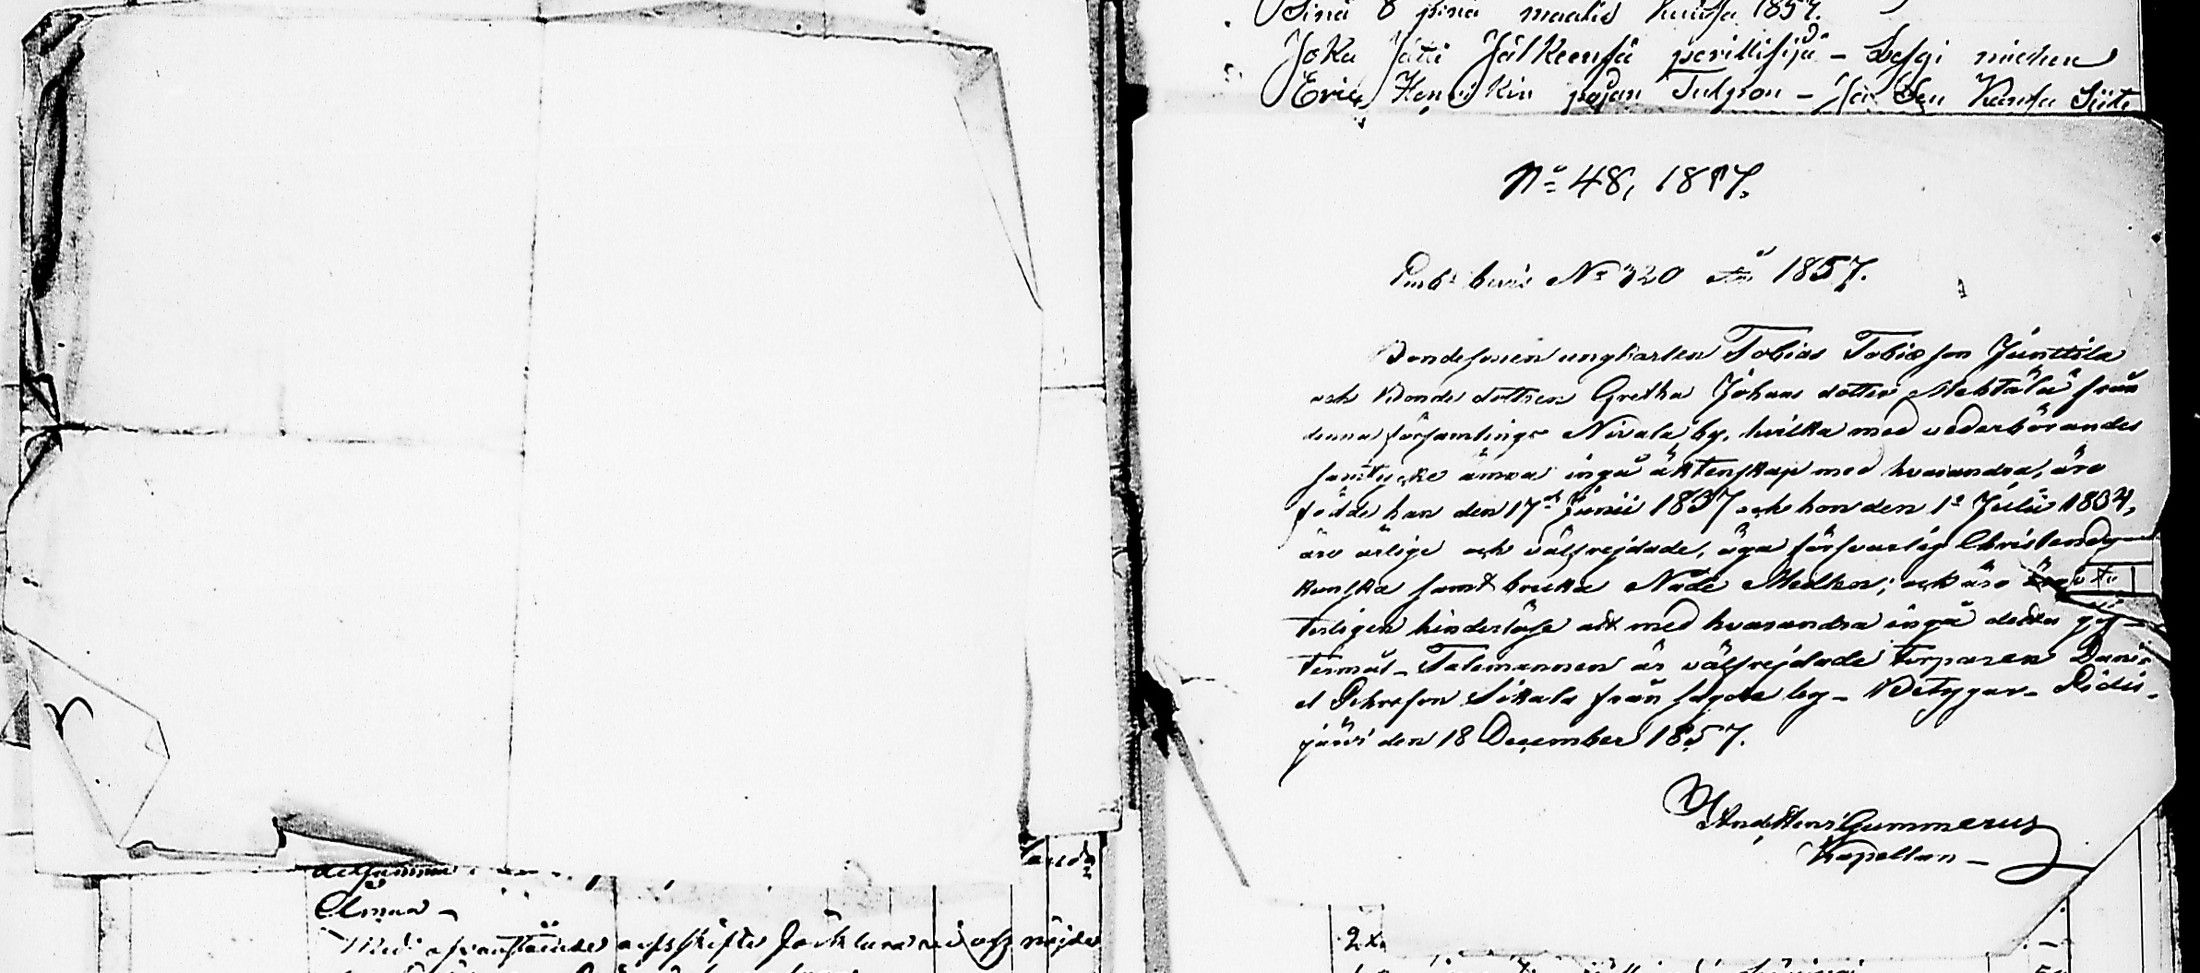 Sinä 8 pinä maalis kuusa 1857.
Joka jätä Jälkeensä perillisijä - Lesgi miehen
Eric Henrikin pojan Tulpon - Ja Sen Kansa Siite
No 48, 1857.
Pmbs bevis No 320 1857.
Bondesonen ungkarlen Tobias Tobiæson Junttila
och Bonde dottren Gretha Johans dotter Mehtälä från
denna församlings Nivala by, hvilka med vederbörandes
samtycke ämna ingå äktenskap med hvarandra, äro
födde han den 17de Junii 1837 och hon den 1a Julii 1834,
äro ärlige och välfrejdade, äga försvarlig Christendoms
kunska samt bruka Nåde Medlen; och äro
terligen hinderlöse att med hvarandra ingå detta gif-
termål - Talemannen är välfrejdade torparen Dani-
el Pehrsson Sikala från sagde by - Betygar - Pidis-
järvi den 18 December 1857.
And Hen Gummerus
Kapellan -
detsamma
Elmna -
Med ofvanstående arfsskifte förklara vi oss nöjde
2